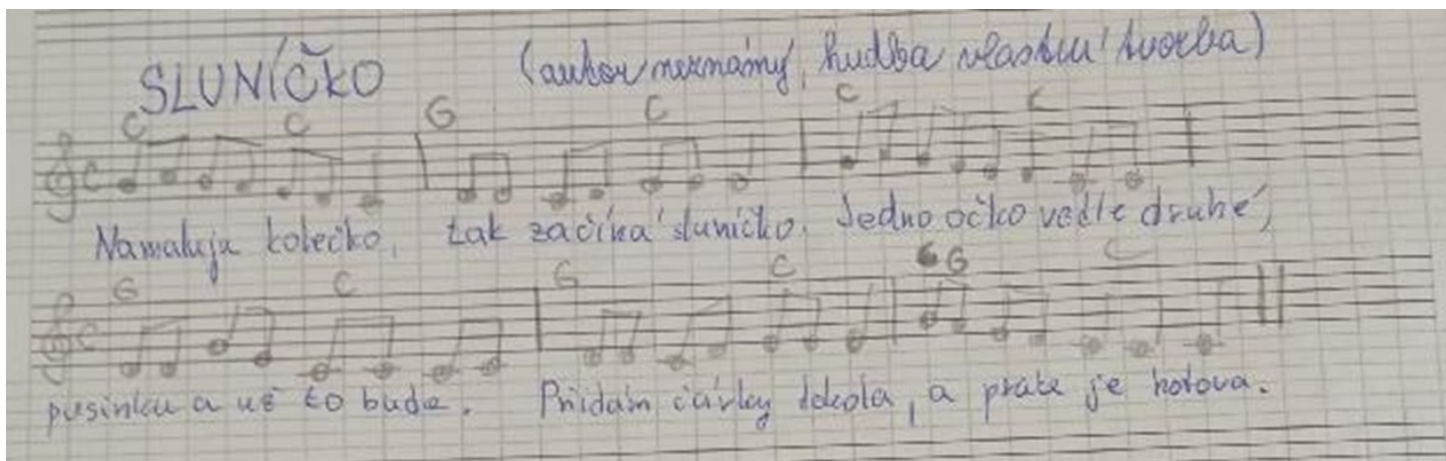 SLUNÍČKO (autor neznámý, hudba vlastní tvorba)
C C G C C C
Namaluju kolečko, tak začíná sluníčko. Jedno očko vedle druhé,
G C G C G C
pusinku a už to bude. Přidám čárky dokola, a práce je hotova.